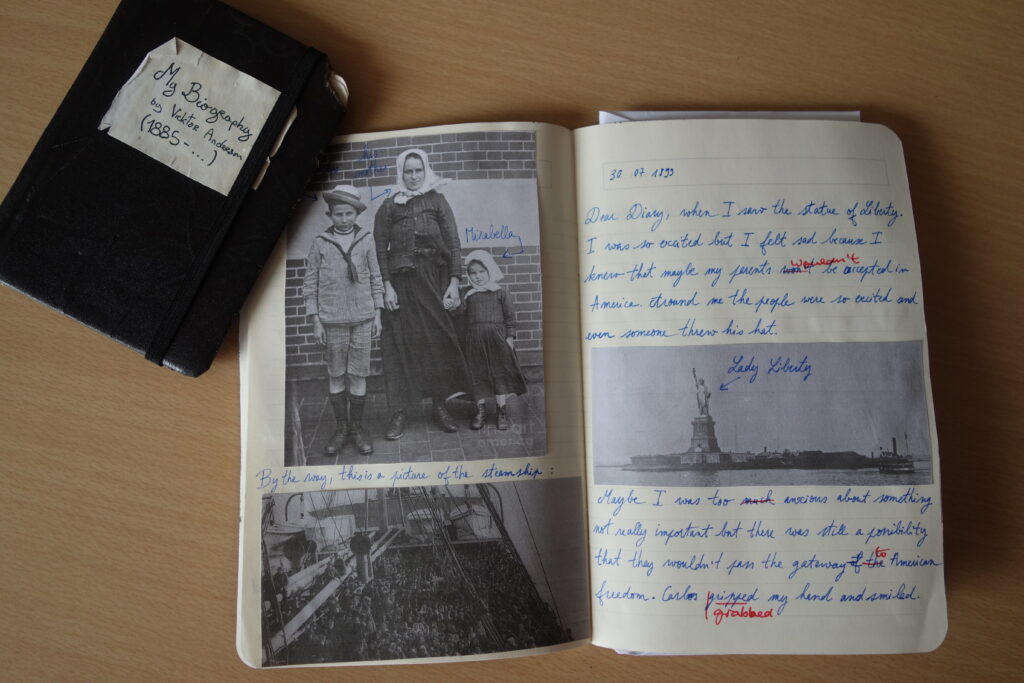 My Biography
by Vicktor Anderson
(1885-...)
his
mother
Mirabella
By the way, this is a picture of the steamship :
30 07 1899
Dear Diary, when I saw the statue of Liberty.
I was so excited but I felt sad because I
wouldn't
knew that maybe my parents won't be accepted in
America. Around me the people were so excited and
even someone threw his hat.
Lady Liberty
Maybe I was too much anxious about something
not really important but there was still a possibility
that they wouldn't pass the gateway of the to American
freedom. Carlos gripped my hand and smiled.
grabbed